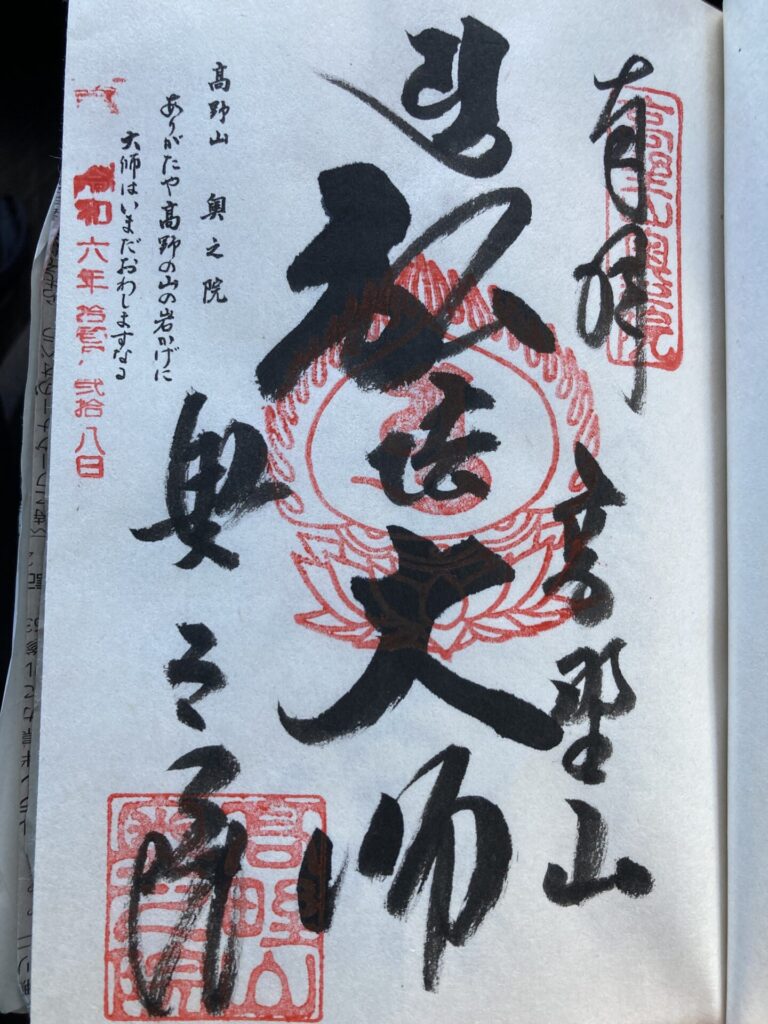 奉拝
高野山
弘法大師
奥之院
高野山 奥之院
ありがたや高野の山の岩かげに
大師はいまだおわしますなる
令和六年拾壱月弐拾八日
高野山
奥之院